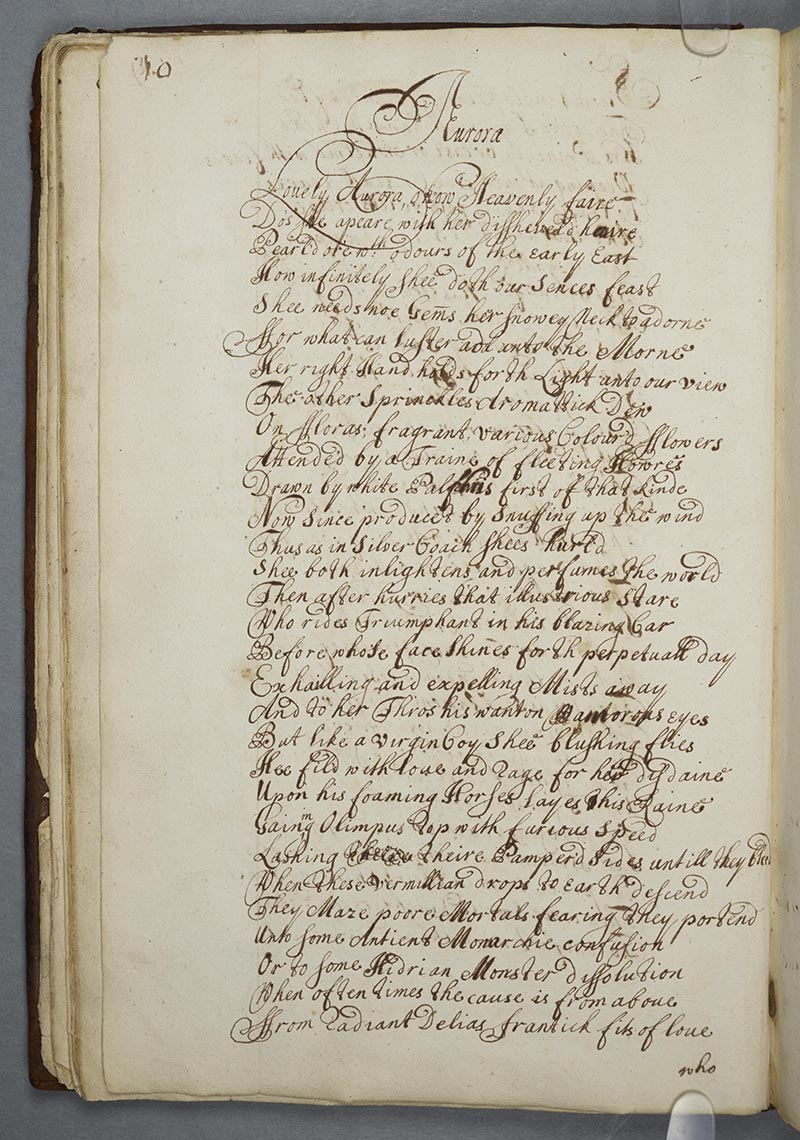 10
Aurora
Lovely Aurora, O how Heavenly faire
Dos she apeare, with her disshevel'd haire
Pearl'd ore wth odours of the early East
How infinitely shee doth our Sences feast
Shee needs noe Gem̄s her snowey Neck to adorne
Ffor what can luster add unto the Morne
Her right Hand holds forth Light unto our view
The other Sprinckles Aromattick Dew
On Ffloras, fragrant, various Colour'd fflowers
Attended by a Traine of fleeting Howres
Drawn by white first of that kinde
Now since produc't by snuffing up the wind
Thus as in Silver Coach shees hurl'd
Shee both inlightens and perfumes the world
Then after hurries that illustrious Stare
Who rides Triumphant in his blazing Car
Before whose face shines forth perpetuall day
Exhailling and expelling Mists away
And to her Thros his wanton Eyes
But like a virgin Coy Shee blushing flies
Hee fild with loue and Rage for her disdaine
Upon his foaming Horses layes his Raine
Gaining Olimpus top with furious Speed
Lashing theire Pamperd Sides untill they bleed
When these Vermillian drops to Earth descend
They Maze poore Mortals fearing they portend
Unto some Antient Monarchie confusion
Or to some Hidrian Monster dissolution
When often times the cause is from above
Ffrom Radiant Delias frantick fits of love
who